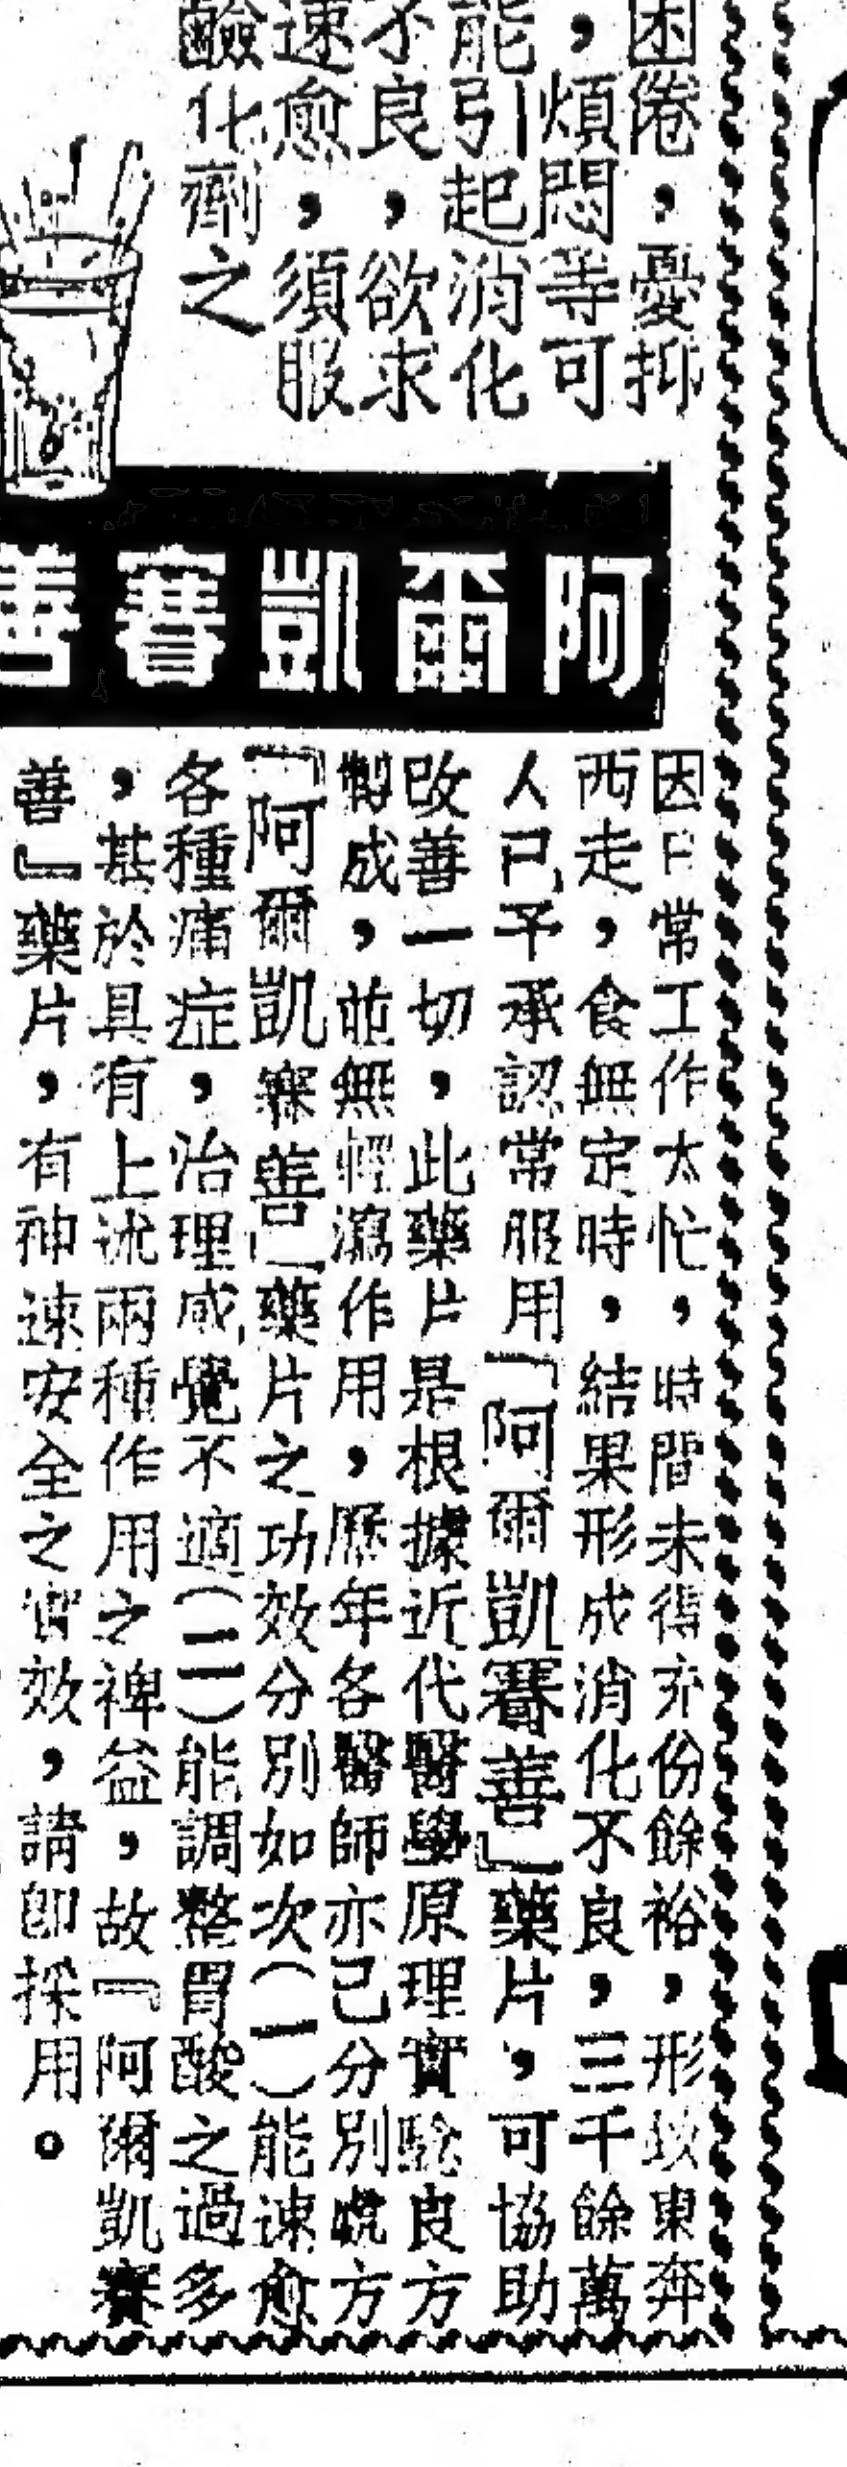 困倦，憂抑
，煩悶等可
能引起消化
不良，欲求
速愈，須服
鹼化劑之
阿爾凱賽善
因日常工作太忙，時間未得充份餘裕，形成東奔
西走，食無定時，結果形成消化不良，三千餘萬
人已予承認常服用「阿爾凱賽善」藥片，可協助
改善一切，此藥片是根據近代醫學原理實驗良方
製成，並無輕瀉作用，歷年各醫師亦已分別處方
「阿爾凱賽善」藥片之功效分別如次（一）能速愈
各種痛症，治理感覺不適（二）能調整胃酸之過多
，甚於具有上述兩種作用之裨益，故『阿爾凱賽
善』藥片，有神速安全之實效，請卽採用。